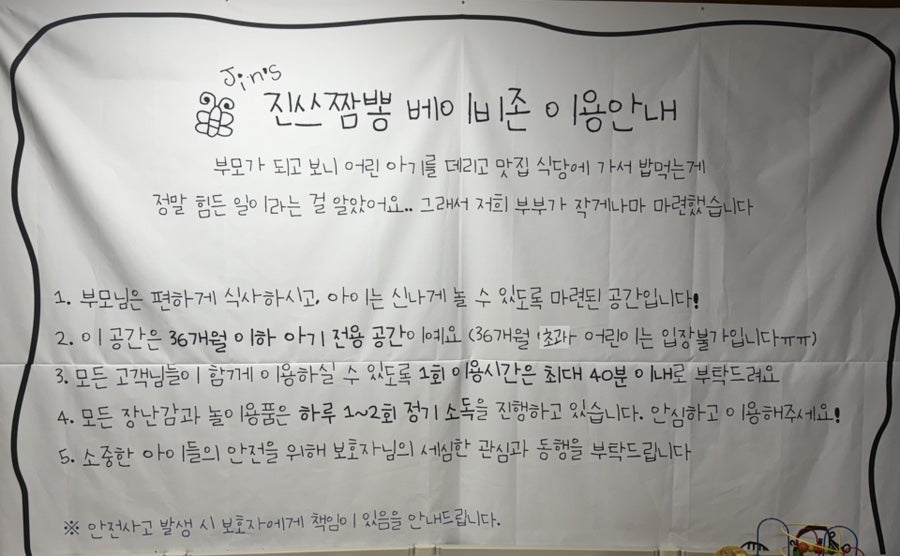 Jin's
진쓰짬뽕 베이비존 이용안내
부모가 되고 보니 어린 아기를 데리고 맛집 식당에 가서 밥먹는게
정말 힘든 일이라는 걸 알았어요.. 그래서 저희 부부가 작게나마 마련했습니다
1. 부모님은 편하게 식사하시고, 아이는 신나게 놀 수 있도록 마련된 공간입니다!
2. 이 공간은 36개월 이하 아기 전용 공간이예요 (36개월 초과 어린이는 입장불가입니다ㅠㅠ)
3. 모든 고객님들이 함께 이용하실 수 있도록 1회 이용시간은 최대 40분 이내로 부탁드려요
4. 모든 장난감과 놀이용품은 하루 1~2회 정기 소독을 진행하고 있습니다. 안심하고 이용해주세요!
5. 소중한 아이들의 안전을 위해 보호자님의 세심한 관심과 동행을 부탁드립니다
※ 안전사고 발생 시 보호자에게 책임이 있음을 안내드립니다.